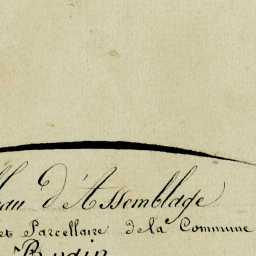 eau d'Assemblage
et Parcellaire de la Commune